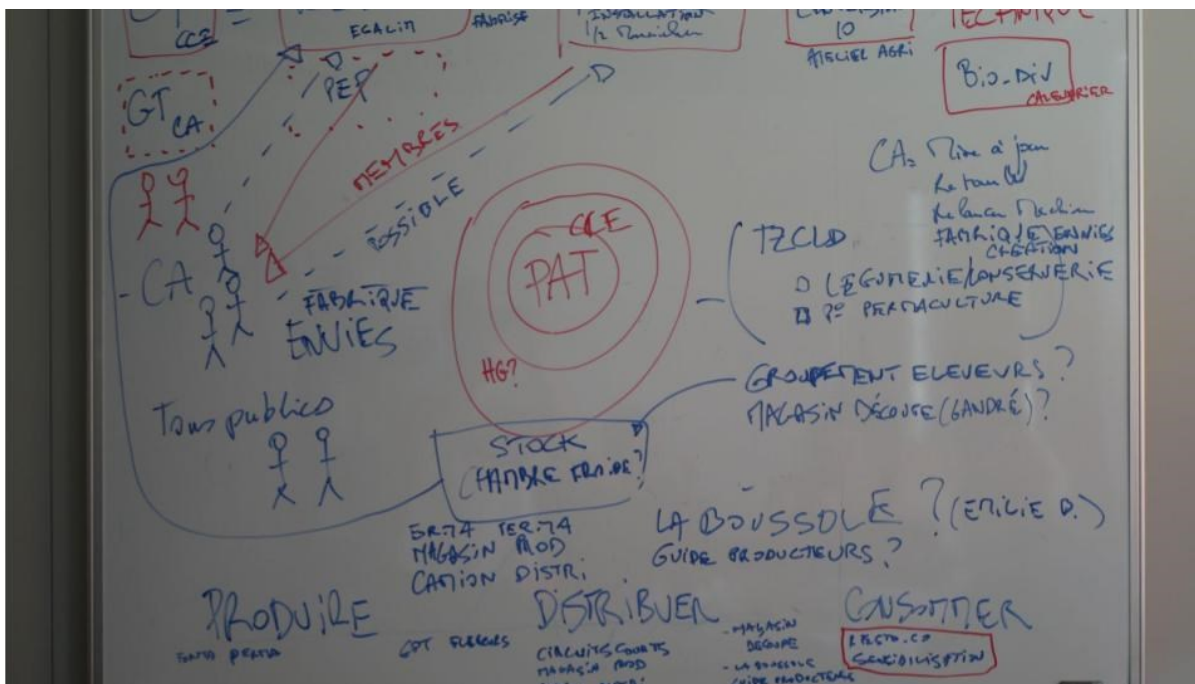 CCE
EGALIM
INSTALLATION
10
ATELIER AGRI
TECHNIQUE
BiO-DIV
CALENDRIER
GT
CA
PEP
MEMBRES
POSSIBLE
- CA
FABRIQUE
ENVIES
Tous publics
CCE
PAT
HG?
CA = Mise à jour
Relancer Machine
FABRIQUE ENVIES
CRÉATION
TZCLD
LÉGUMERIE/CONSERVERIE
PERMACULTURE
GROUPEMENT ELEVEURS ?
MAGASIN DÉCOUPE (GANDRÉ) ?
STOCK
CHAMBRE FROIDE ?
MAGASIN PROD
CAMION DISTRI.
LA BOUSSOLE ? (EMILIE D.)
GUIDE PRODUCTEURS ?
PRODUIRE
DISTRIBUER
CONSOMMER
CIRCUITS COURTS
MAGASIN PROD
- MAGASIN
DECOUPE
- LA BOUSSOLE
GUIDE PRODUCTEURS
RESTO.CO
SENSIBILISATION